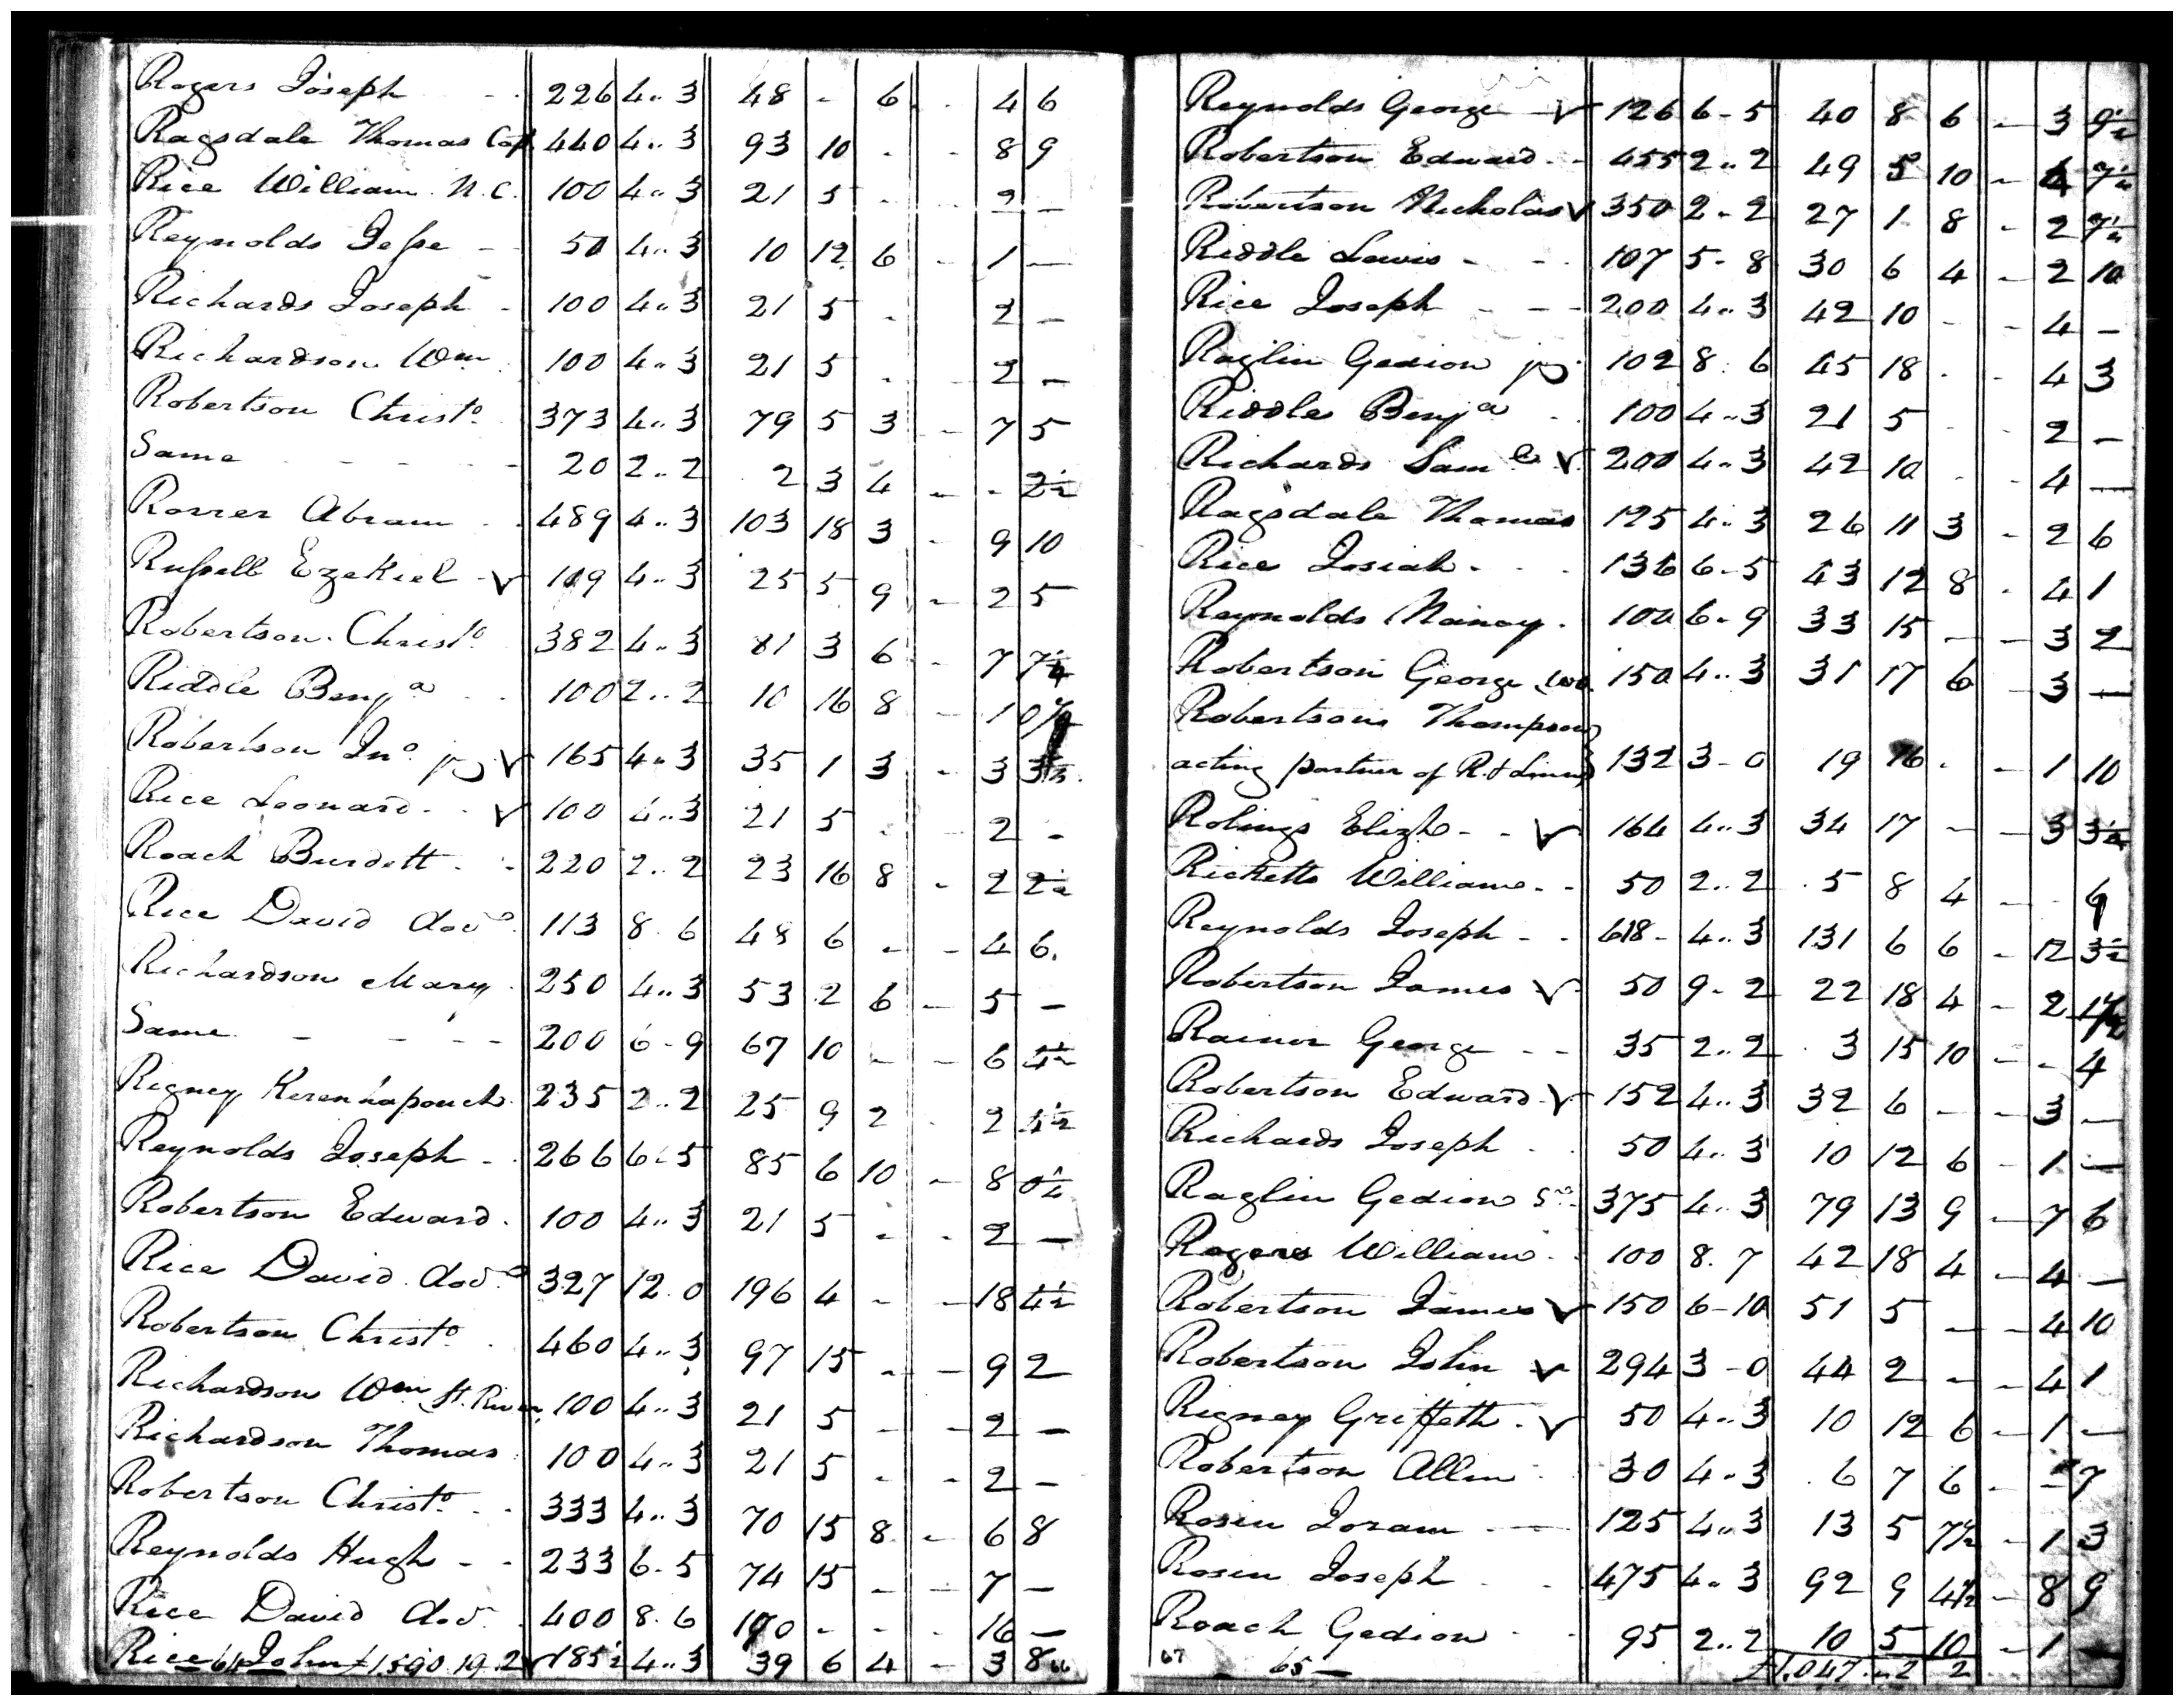 Rogers Joseph - 226 4..3 48 - 6 - 4 6
Ragsdale Thomas Cap 440 4..3 93 10 - - 8 9
Rice William N.C. 100 4..3 21 5 - - 2 -
Reynolds Jesse - 50 4..3 10 12 6 - 1 -
Richards Joseph - 100 4..3 21 5 - 2 -
Richardson Wm 100 4..3 21 5 - - 2 -
Robertson Christo. 373 4..3 79 5 3 - 7 5
Same - - - - 20 2..2 2 3 4 - - 2½
Rorrer Abram - 489 4..3 103 18 3 - 9 10
Russell Ezekiel - ✓ 119 4..3 25 5 9 - 2 5
Robertson Christo. 382 4..3 81 3 6 - 7
Riddle Benja - - 100 2..2 10 16 8 - 1
Robertson Jno. ✓ 165 4..3 35 1 3 - 3
Rice Leonard - - ✓ 100 4..3 21 5 - - 2 -
Roach Burdett - - 220 2..2 23 16 8 - 2 2½
Rice David 113 8.6 48 6 - - 4 6.
Richardson Mary 250 4..3 53 2 6 - 5 -
Same - - - - 200 6-9 67 10 - - 6 4½
Rigney Kerenhapouch 235 2..2 25 9 2 - 2 4½
Reynolds Joseph - 266 6-5 85 6 10 - 8 0½
Robertson Edward. 100 4..3 21 5 - - 2 -
Rice David 327 12.0 196 4 - - 18 4½
Robertson Christo. 460 4..3 97 15 - - 9 2
Richardson Wm St. River 100 4..3 21 5 - - 2 -
Richardson Thomas 100 4..3 21 5 - - 2 -
Robertson Christo. - 333 4..3 70 15 8 - 6 8
Reynolds Hugh - - 233 6-5 74 15 - - 7 -
Rice David 400 8.6 170 - - - 16 -
Rice John ✓ 185½ 4..3 39 6 4 - 3 8
64 £1590.19.2 66
Reynolds George ✓ 126 6-5 40 8 6 - 3 9½
Robertson Edward - - 455 2..2 49 5 10 - 4 7½
Robertson Nicholas ✓ 350 2-2 27 1 8 - 2
Riddle Lewis - - 107 5-8 30 6 4 - 2 10
Rice Joseph - - - 200 4..3 42 10 - - 4 -
Raglin Gedion 102 8.6 45 18 - - 4 3
Riddle Benja - 100 4..3 21 5 - - 2 -
Richards Saml ✓ 200 4..3 42 10 - - 4 -
Ragsdale Thomas 125 4..3 26 11 3 - 2 6
Rice Josiah - - - 136 6-5 43 12 8 - 4 1
Reynolds Nancy - 100 6-9 33 15 - - 3 2
Robertson George 150 4..3 31 17 6 - 3 -
Robertson Thompson
acting partner of R. & 132 3-0 19 16 - - 1 10
Rolings Elizh - - ✓ 164 4..3 34 17 - - 3 3½
Ricketts William - - 50 2..2 5 8 4 - - 9
Reynolds Joseph - - 618 - 4..3 131 6 6 - 12 3½
Robertson James ✓ 50 9-2 22 18 4 - 2
Rainor George - - 35 2..2 3 15 10 - - 4
Robertson Edward ✓ 152 4..3 32 6 - - 3 -
Richards Joseph - 50 4..3 10 12 6 - 1 -
Raglin Gedion Sr. 375 4..3 79 13 9 - 7 6
Rogers William - 100 8.7 42 18 4 - 4 -
Robertson James ✓ 150 6-10 51 5 - - 4 10
Robertson John ✓ 294 3-0 44 2 - - 4 1
Rigney Griffeth. ✓ 50 4..3 10 12 6 - 1 -
Robertson Allen - 30 4..3 6 7 6 - - 7
Rosin Joram - 125 4..3 13 5 7½ - 1 3
Rosin Joseph - - 475 4..3 92 9 4½ - 8 9
Roach Gedion - - 95 2..2 10 5 10 - 1 -
67 65 £1.047 - 2 2